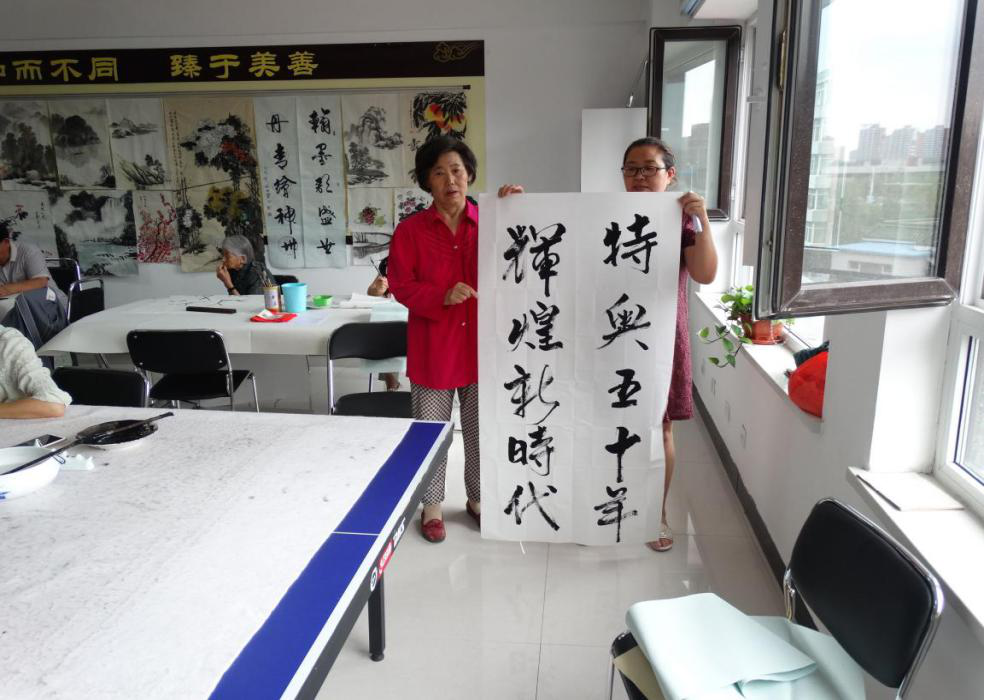 和而不同 臻于美善
翰墨歌盛世
丹青繪神州
特奥五十年
輝煌新時代